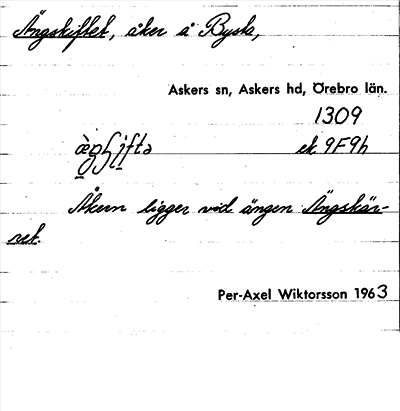 Ängskiftet, åker å Bysta,
Askers sn, Askers hd, Örebro län.
1309
ek 9F9h
Åkern ligger vid ängen Ängskär-
ret.
Per-Axel Wiktorsson 1963